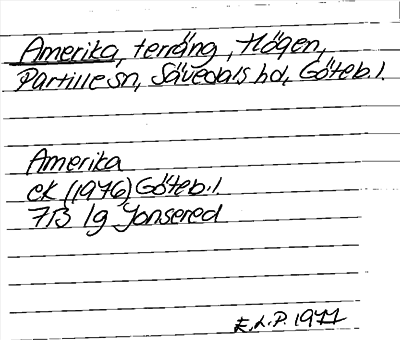 Amerika, terräng, Högen,
Partille sn, Sävedals hd, Göteb.l.
Amerika
ek (1976) Göteb.l
7B 1g Jonsered
E.L.P. 1977